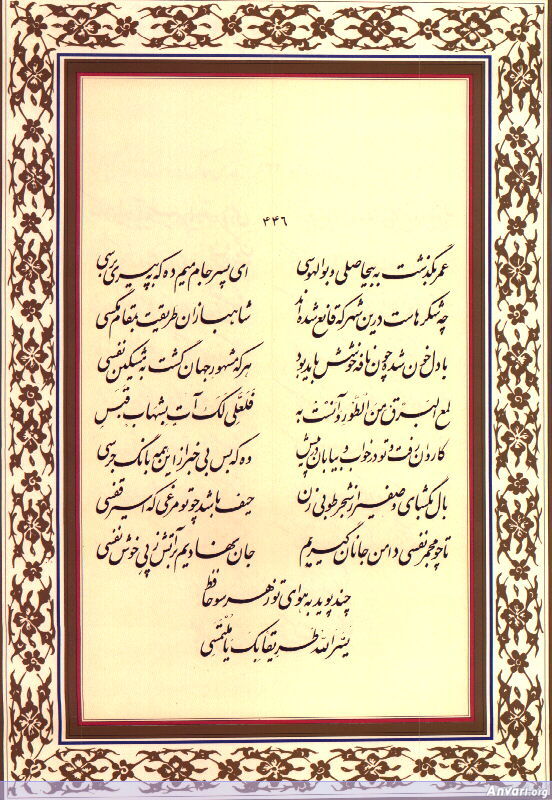 ۴۴۶
عمر بگذشت به بیحاصلی و بوالهوسی ای پسر جام میم ده که به پیری برسی
چه شکرهاست درین شهر که قانع شده‌اند شاهبازان طریقت بمقام مگسی
با دل خون شده چون نافه خوشش باید بود هر که مشهور جهان گشت به مشکین نفسی
لمع البرق من الطور و آنست به فلعلی لک آت بشهاب قبس
کاروان رفت و تو در خواب و بیابان در پیش وه که بس بی خبر از این همه بانگ جرسی
بال بگشای و صفیر از شجر طوبی زن حیف باشد چو تو مرغی که اسیر قفسی
تا چو مجمر نفسی دامن جانان گیریم جان نهادیم بر آتش ز پی خوش نفسی
چند پوید به هوای تو ز هر سو حافظ
یسر الله طریقا بک یا ملتمسی
Anvari.org